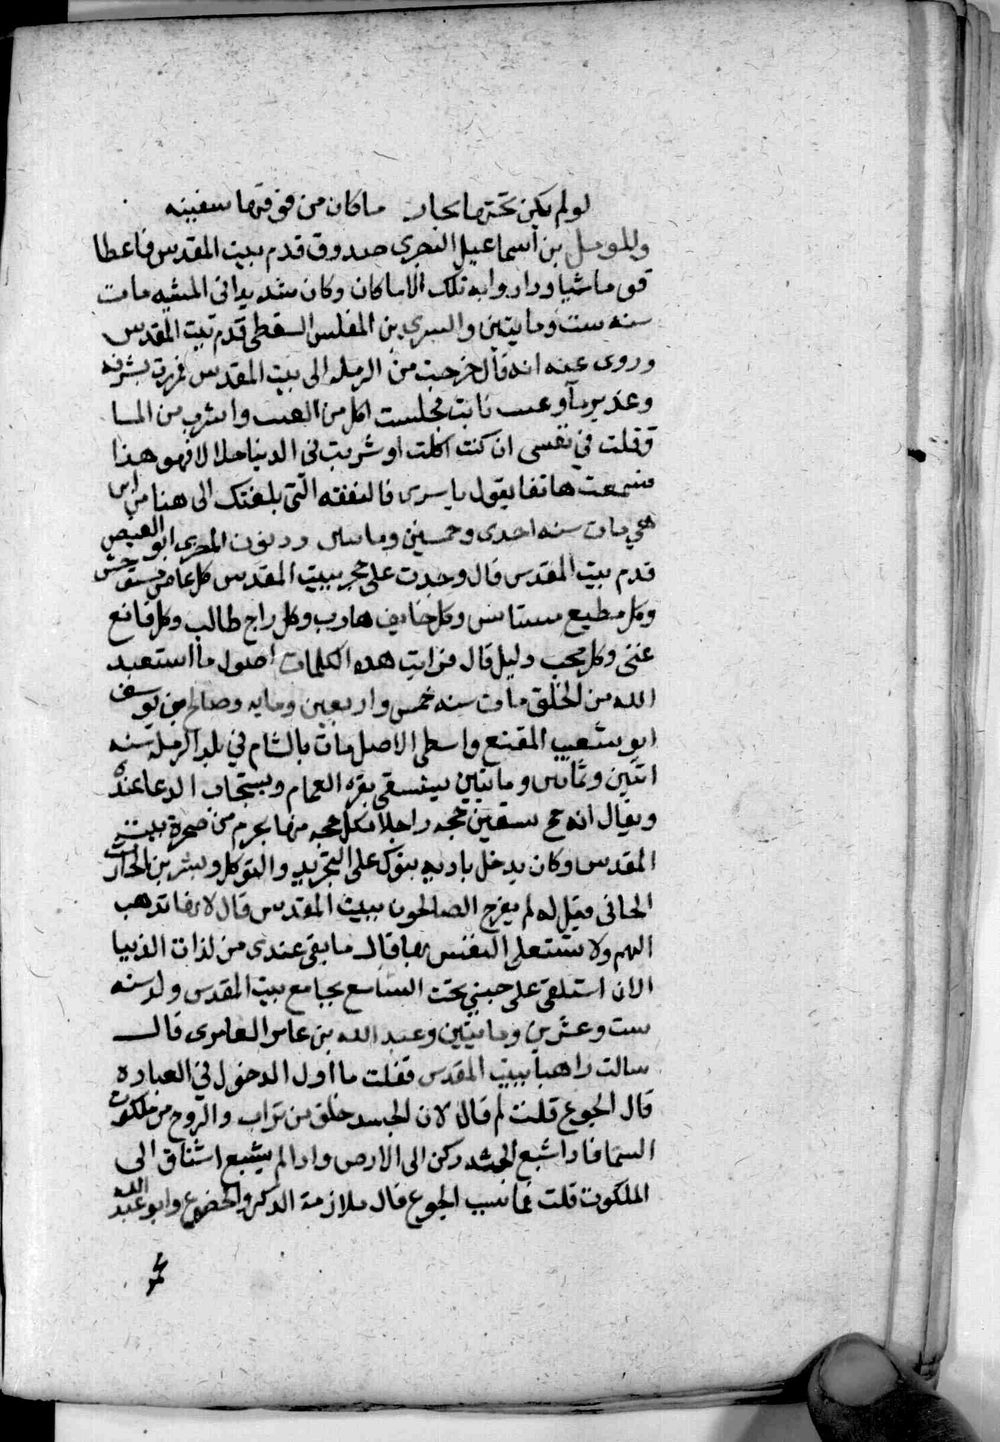 لو لم يكن تحتها بحار ما كان من فوقها سفينه
والمومل بن اسماعيل البصري صدوق قدم بيت المقدس فاعطا
قوما شيا وداروا به تلك الاماكان وكان شديدا في السنه مات
سنه ست ومايتين والسري بن المغلس السقطي قدم بيت المقدس
وروى عنه انه قال خرجت من الرمله الى بيت المقدس فمررت بشرفه
وغدير مآ وعسب نابت فجلست اكل من العسب واشرب من الما
وقلت في نفسى ان كنت اكلت او شربت فى الدنيا حلالا فهو هذا
فسمعت هاتفا يقول يا سرى فالنفقه التى بلغتك الى هنا من اين
هي مات سنه احدى وخمسين ومايتين وذنون المصرى ابو الفيض
قدم بيت المقدس قال وجدت على حجر ببيت المقدس كل عاص مستوحش
وكل مطيع مستانس وكل خايف هارب وكل راج طالب وكل قانع
غنى وكل محب ذليل قال فرايت هذه الكلمات اصول ما استعبد
الله من الخلق مات سنه خمس واربعين ومايه وصالح بن يوسف
ابو شعيب المقنع واسطى الاصل مات بالشام في بلد الرمله سنه
اثنين وثمانين ومايتين يستسقى بقبره الغمام ويستجاب الدعا عنده
ويقال انه حج سبعين حجه راجلا بكل حجه منها يحرم من صخرة بيت
المقدس وكان يدخل باديه تبوك على التجريد والتوكل وبشر بن الحارث
الحافى فقيل له لم يفرح الصالحون ببيت المقدس قال لانها تذهب
الهم ولا تستعلى النفس بها قال ما بقى عندى من لذات الدنيا
الا ان استلقى على جنبي تحت السما مع بجامع بيت المقدس ولد سنه
ست وعشرين ومايتين وعبد الله بن عامر العامرى قال
سالت راهبا ببيت المقدس فقلت ما اول الدخول في العباده
قال الجوع قلت لم قال لان الجسد خلق من تراب والروح من ملكوت
السما فاذا شبع الجسد ركن الى الارض واذا لم يشبع اشتاق الى
الملكوت قلت فما سبب الجوع قال ملازمة الذكر والخضوع وابو عبد الله